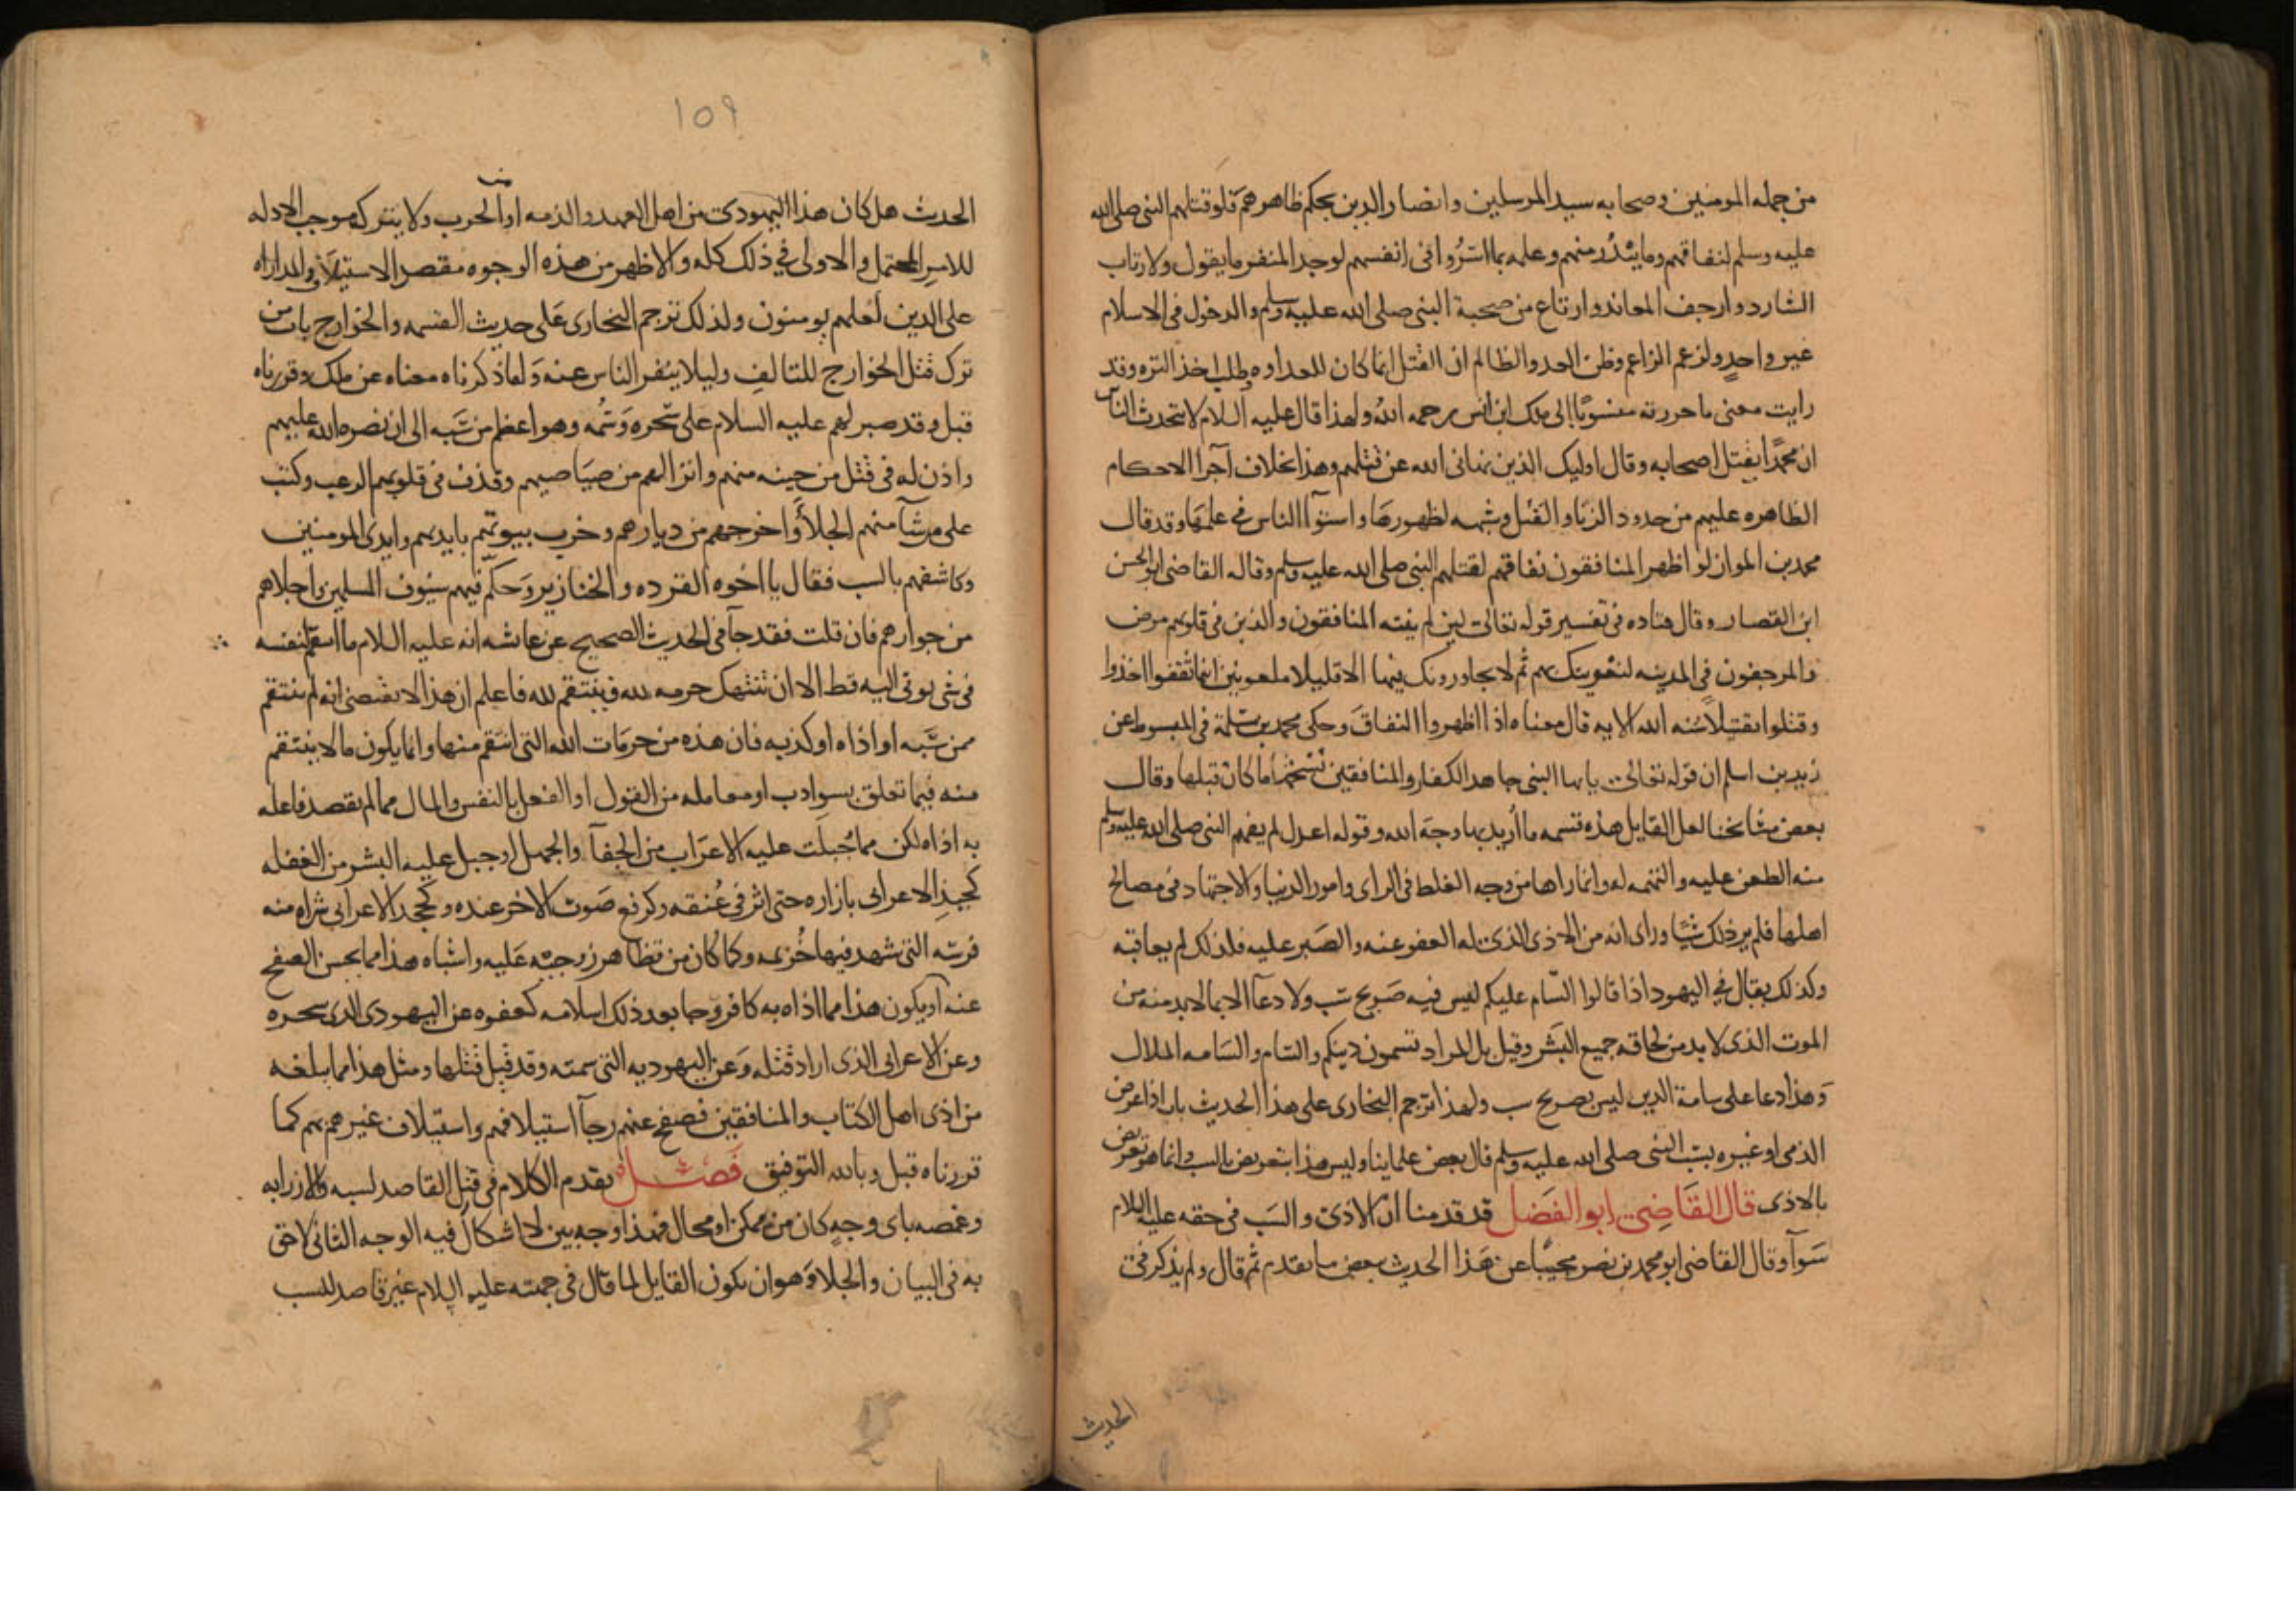 من جمله المومنين وصحابه سيد المرسلين وانصار الدين بحكم ظاهرهم فلو قتلهم النبى صلى الله
عليه وسلم لنفاقهم وما يبدر منهم وعلمه بما اسروا فى انفسهم لوجد المنفر ما يقول ولارتاب
الشارد وارجف المعاند وارتاع من صحبة النبى صلى الله عليه وسلم والدخول فى الاسلام
غير واحد ولزعم الزاعم وظن العدو الظالم ان القتل انما كان للعداوه وطلب اخذ التره وقد
رايت معنى ما حررته منسوبا الى ملك ابن انس رحمه الله ولهذا قال عليه السلام لا يتحدث الناس
ان محمدا يقتل اصحابه وقال اوليك الذين نهانى الله عن قتلهم وهذا بخلاف اجرا الاحكام
الظاهره عليهم من حدود الزنا والقتل وشبهه لظهورها واستوآ الناس فى علمها وقد قال
محمد بن المواز لو اظهر المنافقون نفاقهم لقتلهم النبى صلى الله عليه وسلم وقاله القاضى ابو الحسن
ابن القصار وقال قتاده فى تفسير قوله تعالى لين لم ينته المنافقون والذين فى قلوبهم مرض
والمرجفون فى المدينه لنغرينك بهم ثم لا يجاورونك فيها الا قليلا ملعونين اينما ثقفوا اخذوا
وقتلوا تقتيلا سنه الله الايه قال معناه اذا اظهروا النفاق وحكى محمد بن مسلمة فى المبسوط عن
زيد بن اسلم ان قوله تعالى يايها النبى جاهد الكفار والمنافقين نسخها ما كان قبلها وقال
بعض مشايخنا لعل القايل هذه قسمه ما اريد بها وجه الله وقوله اعدل لم يفهم النبى صلى الله عليه وسلم
منه الطعن عليه والتهمه له وانما راها من وجه الغلط فى الراى وامور الدنيا والاجتهاد فى مصالح
اهلها فلم ير ذلك شيا وراى انه من الاذى الذى له العفو عنه والصبر عليه فلذلك لم يعاقبه
وكذلك يقال فى اليهود اذا قالوا السام عليكم ليس فيه صريح سب ولا دعا الا بما لا بد منه من
الموت الذى لا بد من لحاقه جميع البشر وقيل بل المراد تسمون دينكم والسام والسامه الملال
وهذا دعا على سامة الدين ليس بصريح سب ولهذا ترجم البخارى على هذا الحديث باب اذا عرض
الذمى او غيره بسب النبى صلى الله عليه وسلم قال بعض علماينا وليس هذا بتعريض بالسب وانما هو تعريض
بالاذى قال القاضى ابو الفضل قد قدمنا ان الاذى والسب فى حقه عليه السلام
سوآ وقال القاضى ابو محمد بن نصر مجيبا عن هذا الحديث ببعض ما تقدم ثم قال ولم يذكر فى
الحديث
١٥٩
الحديث هل كان هذا اليهودى من اهل العهد والذمه او الحرب ولا يترك موجب الادله
للامر المحتمل والاولى فى ذلك كله والاظهر من هذه الوجوه مقصد الاستيلاف والمداراه
على الدين لعلهم يومنون ولذلك ترجم البخارى على حديث القسمه والخوارج باب من
ترك قتل الخوارج للتالف وليلا ينفر الناس عنه ولما ذكرناه معناه عن ملك وقررناه
قبل وقد صبر لهم عليه السلام على سحره وسمه وهو اعظم من سبه الى ان نصره الله عليهم
واذن له فى قتل من حينه منهم وانزالهم من صياصيهم وقذف فى قلوبهم الرعب وكتب
على من شآ منهم الجلآ واخرجهم من ديارهم وخرب بيوتهم بايديهم وايدى المومنين
وكاشفهم بالسب فقال يا اخوه القرده والخنازير وحكم فيهم سيوف المسلمين واجلاهم
من جوارهم فان قلت فقد جآ فى الحديث الصحيح عن عايشه انه عليه السلام ما انتقم لنفسه
فى شى يوتى اليه قط الا ان تنتهك حرمه لله فينتقم لله فاعلم ان هذا لا يقتضى انه لم ينتقم
ممن سبه او اذاه او كذبه فان هذه من حرمات الله التى انتقم منها وانما يكون ما لا ينتقم
منه فيما تعلق بسو ادب او معامله من القول او الفعل بالنفس والمال مما لم يقصد فاعله
به اذاه لكن مما جبلت عليه الاعراب من الجفآ والجهل او جبل عليه البشر من الغفله
كجبذ الاعرابى بازاره حتى اثر فى عنقه وكرفع صوت الاخر عنده وكجحد الاعرابى شراه منه
فرسه التى شهد فيها خزيمه وكما كان من تظاهر زوجيه عليه واشباه هذا مما يحسن الصفح
عنه او يكون هذا مما اذاه به كافر وجا بعد ذلك اسلامه كعفوه عن اليهودى الذى سحره
وعن الاعرابى الذى اراد قتله وعن اليهوديه التى سمته وقد قيل قتلها ومثل هذا مما يبلغه
من اذى اهل الكتاب والمنافقين فصفح عنهم رجآ استيلافهم واستيلاف غيرهم بهم كما
قررناه قبل وبالله التوفيق فصل تقدم الكلام فى قتل القاصد لسبه والازرابه
وغمصه باى وجه كان من ممكن او محال فهذا وجه بين لا اشكال فيه الوجه الثانى لاحق
به فى البيان والجلا وهو ان يكون القايل لما قال فى جهته عليه السلام غير قاصد للسب